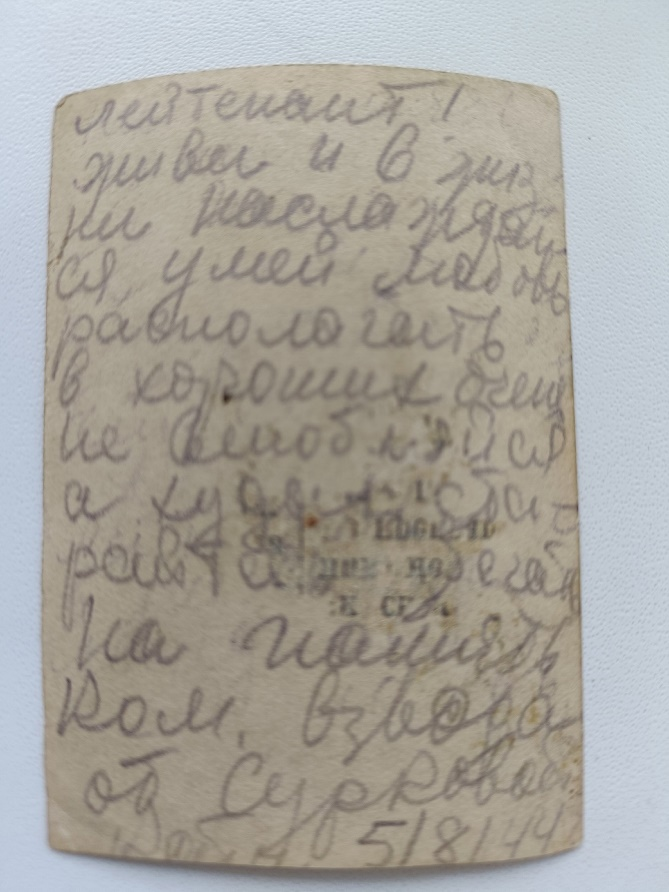 лейтенант!
живи и в жиз
ни наслаждай
ся умей любовь
распологать
в хороших очень
не влюбляйся
а худых ста
райся
На память
Ком. взвода
от Сурковой
5/8/44